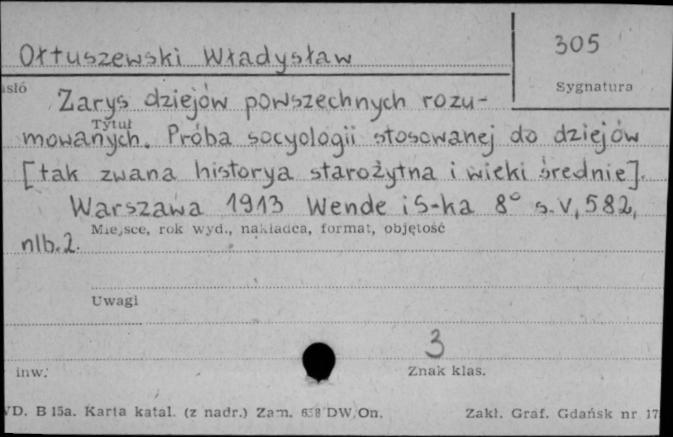 Ołtuszewski Władysław
305
Sygnatura
Zarys dziejów powszechnych rozu-
Tytuł
mowanych. Próba socyologii stosowanej do dziejów
[tak zwana historya starożytna i wieki średnie].
Warszawa 1913 Wende i S-ka 8° s. V, 582,
Miejsce, rok wyd., nakładca, format, objętość
nlb. 2.
Uwagi
3
inw.
Znak klas.
B 15a. Karta katal. (z nadr.) Zam. 638 DW/On.
Zakł. Graf. Gdańsk nr 17